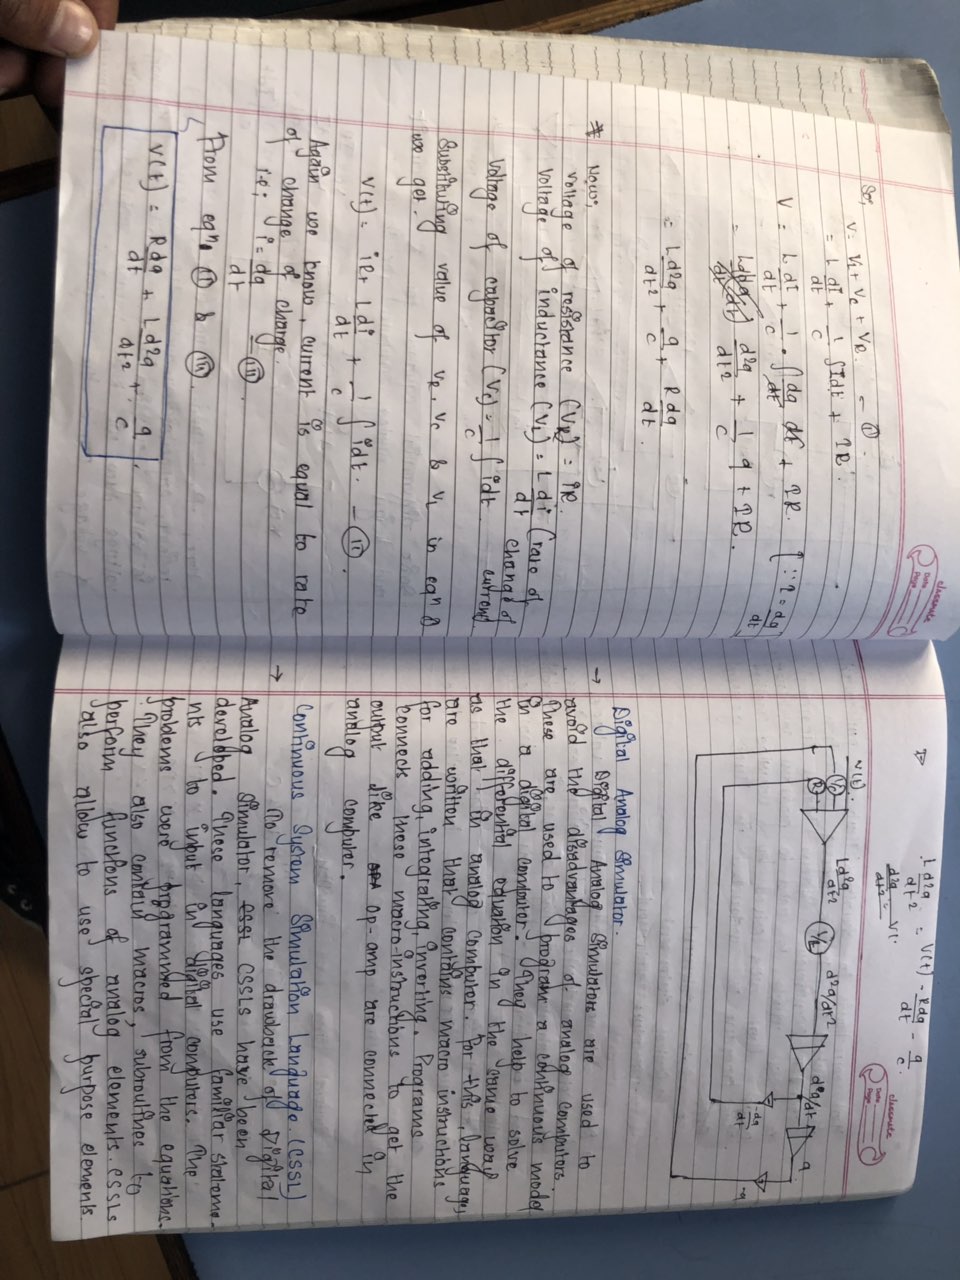 classmate
Date
Page
So,
V = VL + VC + VR. — (I).
= L di/dt + 1/C ∫Idt + IR.
V = L dI/dt + 1/C . ∫ dq/dt dt + IR. [∵ I = dq/dt
= d2q/dt2 + 1/C q + IR.
= L d2q/dt2 + q/C + R dq/dt.
* Now,
voltage of resistance (VR) = IR.
voltage of inductance (VL) = L di/dt (rate of change of current
voltage of capacitor (VC) = 1/C ∫ idt.
Substituting value of VR, VC & VL in eqn (I)
we get.
V(t) = iR + L di/dt + 1/C ∫ idt. — (II).
Again we know, current is equal to rate
of change of charge.
i.e; i = dq/dt — (III)
From eqn (II) & (III).
V(t) = R dq/dt + L d2q/dt2 + q/C.
classmate
Date
Page
L d2q/dt2 = V(t) - R dq/dt - q/C.
d2q/dt2 = V1.
V(t).
1/C
R
L d2q/dt2
1/L
d2q/dt2
dq/dt
q
-dq/dt
-q
→ Digital Analog Simulator.
Digital Analog Simulators are used to
avoid the disadvantages of analog computors.
These are used to program a continuous model
in a digital computor. They help to solve
the differential equation in the same way
as that in analog computor. For this, languages
are written that contains macro instructions
for adding, integrating, inverting. Programs
connects these macro-instructions to get the
output like op-amp are connected in
analog computor.
→ Continuous System Simulation Language. (CSSL)
To remove the drawback of Digital
Analog Simulator, CSSL CSSLs have been
developed. These languages use familiar stateme-
nts to input in digital computors. The
problems were programmed from the equations.
They also contain macros, subroutines to
perform functions of analog elements. CSSLs
also allow to use special purpose elements.